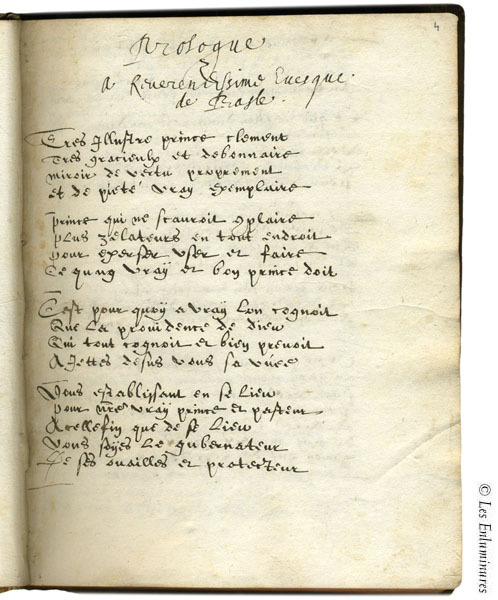 4
Prologue
A Reverendissime Evesque
de Basle.
Tres Illustre prince clement
Tres gracieulx et debonnaire
miroir de vertu proprement
et de pieté vray exemplaire
prince qui ne scauroit 9plaire
plus zelateurs en tout endroit
pour exerser user et faire
Ce qung vray et bon prince doit
Cest pour quoy a vray lon cognoit
Que la providence de dieu
Qui tout cognoit et bien prevoit
A Jettes desus vous sa vuee
Vous establissant en se lieu
pour nre vray prince et pasteur
Acellefin que de se lieu
Vous soyes le gubernateur
De ses ouailles et protecteur
© Les Enluminures